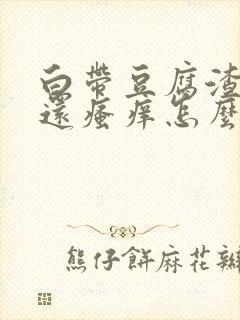 白帶豆腐渣
還瘙痒怎麼
熊仔餅麻花辮